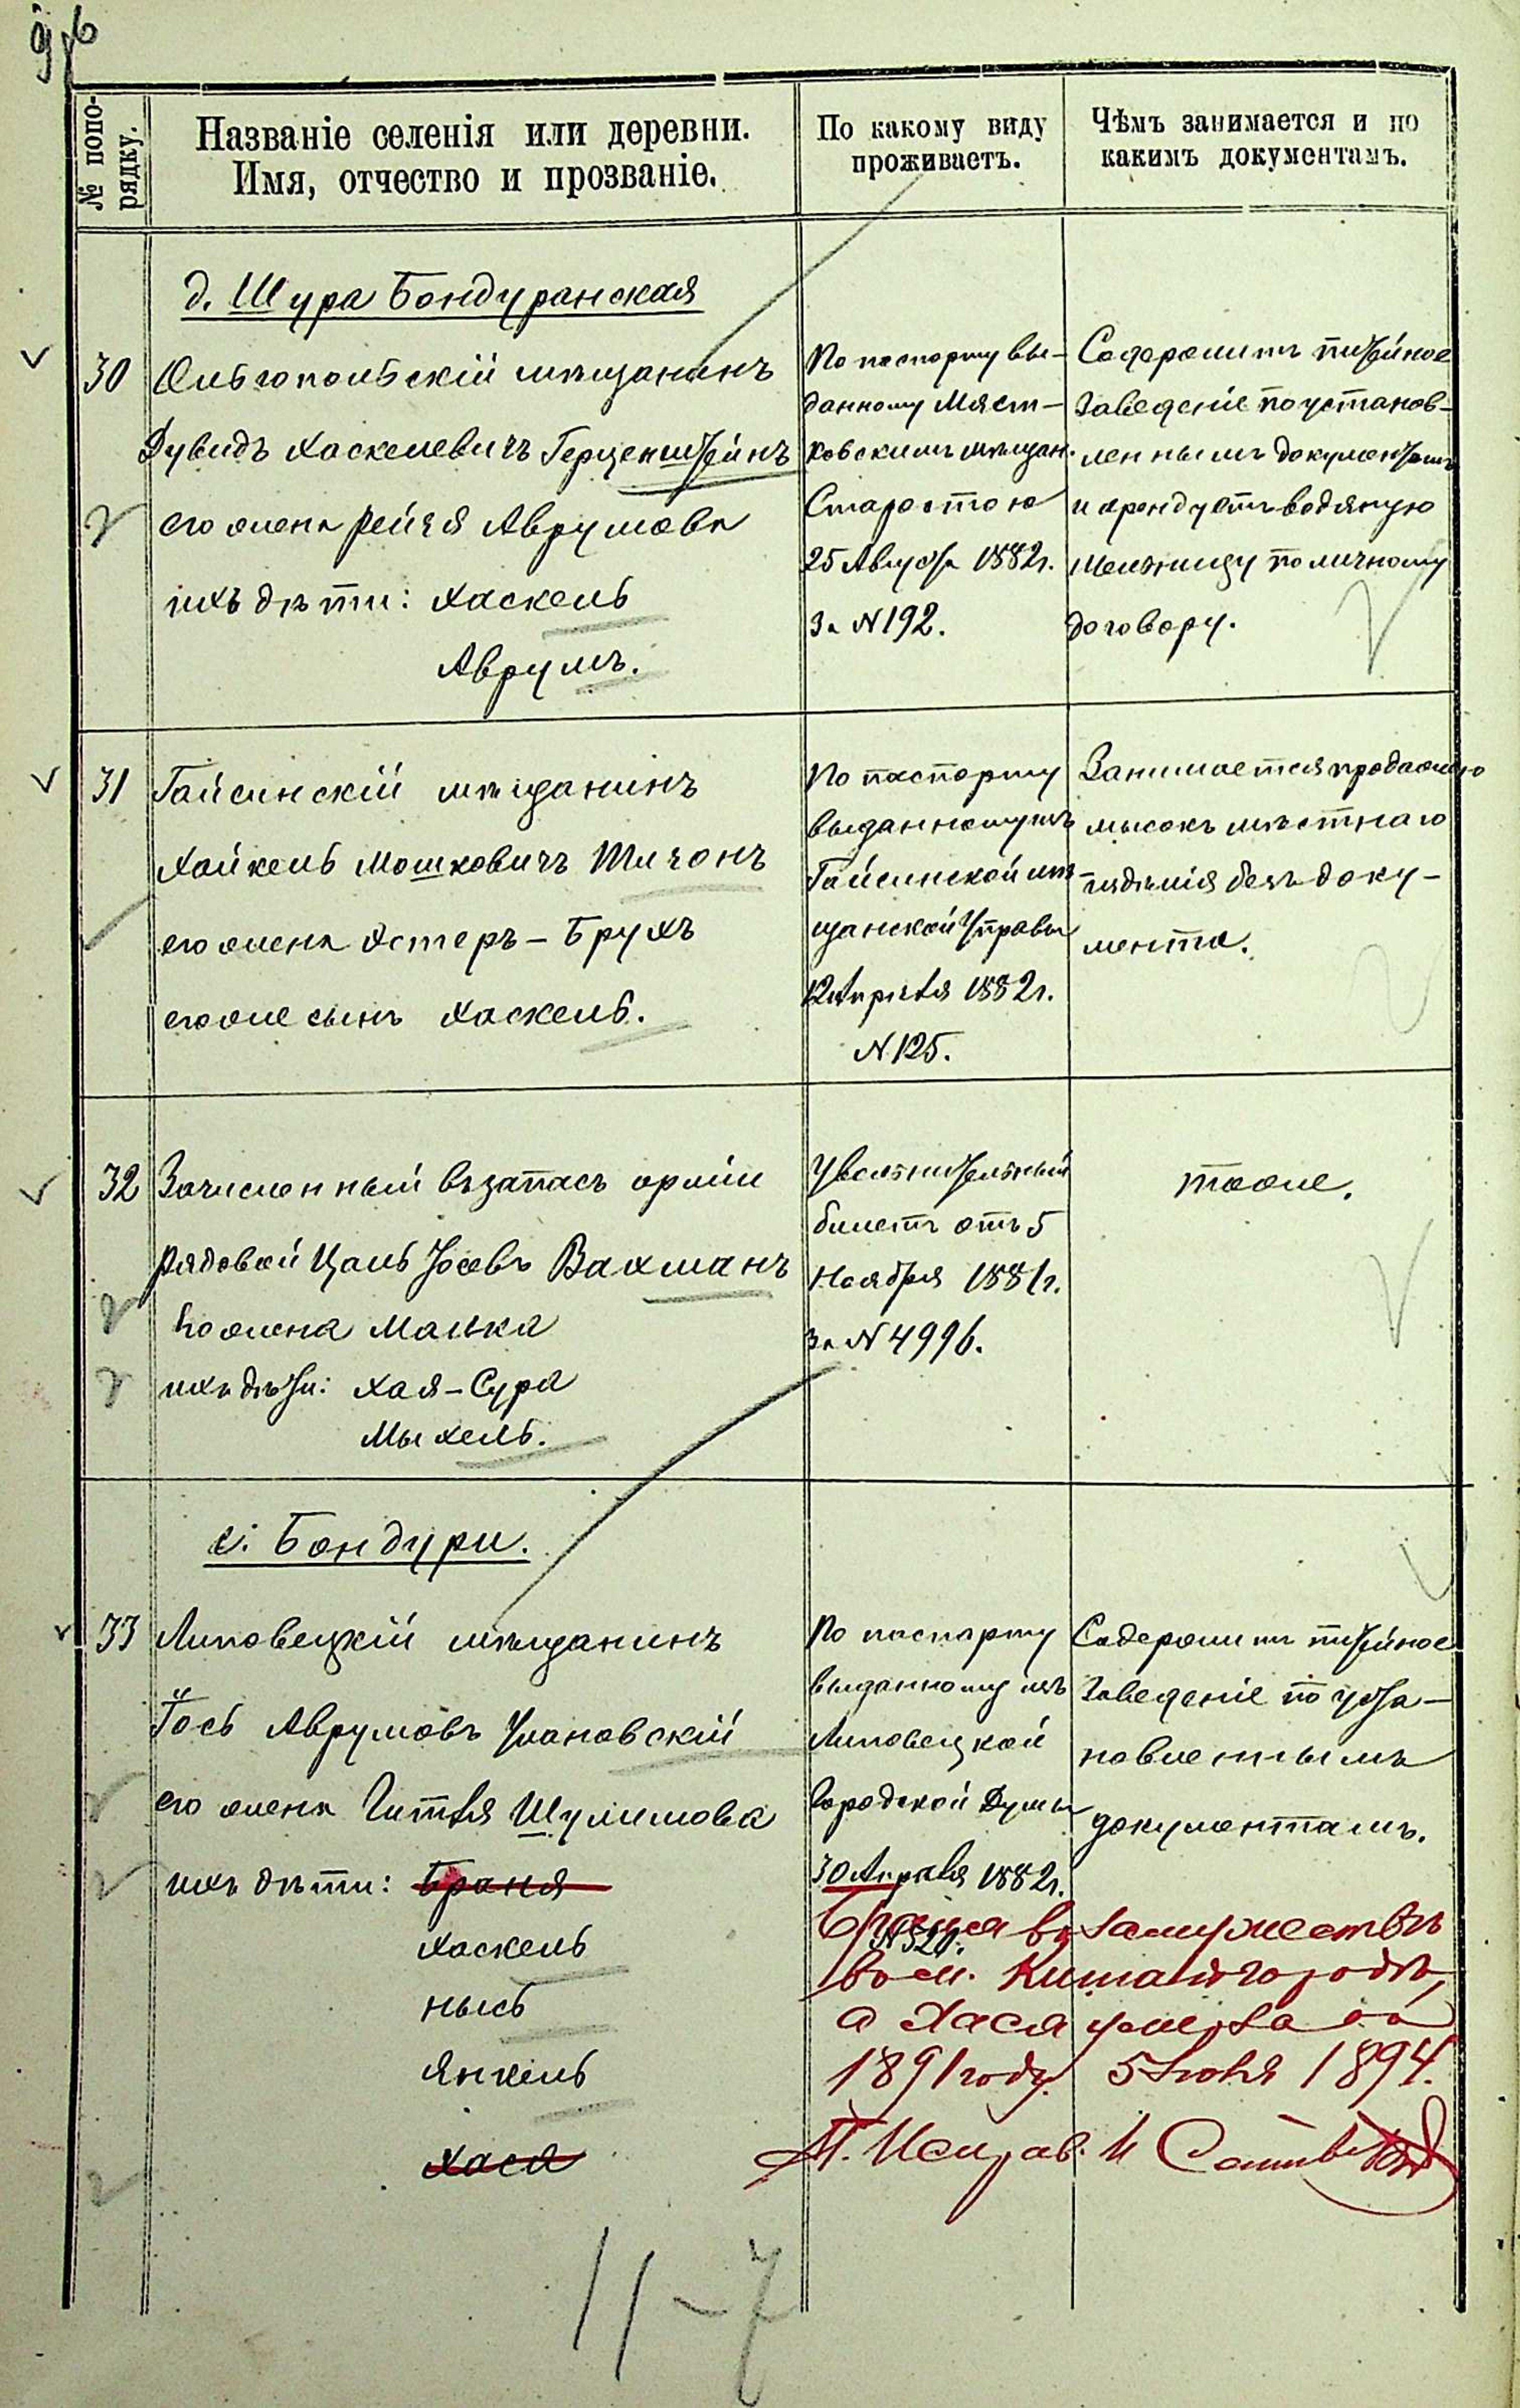 № попо-
рядку.
Названіе селенія или деревни.
Имя, отчество и прозваніе.
По какому виду
проживаетъ.
Чѣмъ занимается и по
какимъ документамъ.
д. Шура Бондуранская
30
Ольгопольскій мѣщанинъ
Дувидъ Хаскелевичъ Герценштейнъ
его жена Рейзя Аврумова
ихъ дѣти: Хаскель
Аврумъ.
По паспорту вы-
данному Мяст-
ковскимъ мѣщан.
Старостою
25 Августа 1882г.
За N 192.
Содержитъ питейное
заведеніе по установ-
леннымъ документамъ
и арендуетъ водяную
мельницу по личному
договору.
31
Гайсинскій мѣщанинъ
Хайкель Мошковичъ
его жена Эстеръ-Брухъ
его же сынъ Хаскель.
По паспорту
выданному изъ
Гайсинской мѣ-
щанской Управы
12 Апрѣля 1882г.
N 125.
Занимается продажею
мѣстнаго
издѣлія безъ доку-
мента.
32
Зачисленный въ запасъ арміи
рядовой Цаль Іосевъ Вахманъ
его жена Малка
ихъ дѣти: Хая-Сура
Мыхель.
Увольнительный
билетъ отъ 5
Ноября 1881г.
за N 4996.
тоже.
с. Бондури.
33
Липовецкій мѣщанинъ
Іось Аврумовъ Улановскій
его жена Гитля Шулимова
ихъ дѣти: Браня
Хаскель
Нысь
Янкель
Хася
По паспорту
выданному изъ
Липовецкой
Городской Думы
30 Апрѣля 1882г.
N 520.
Содержитъ питейное
заведеніе по уста-
новленнымъ
документамъ.
въ замужествѣ
въ м. Китайгородѣ,
а Хася умерла въ
1891 году. 5 Іюля 1894.
11-7